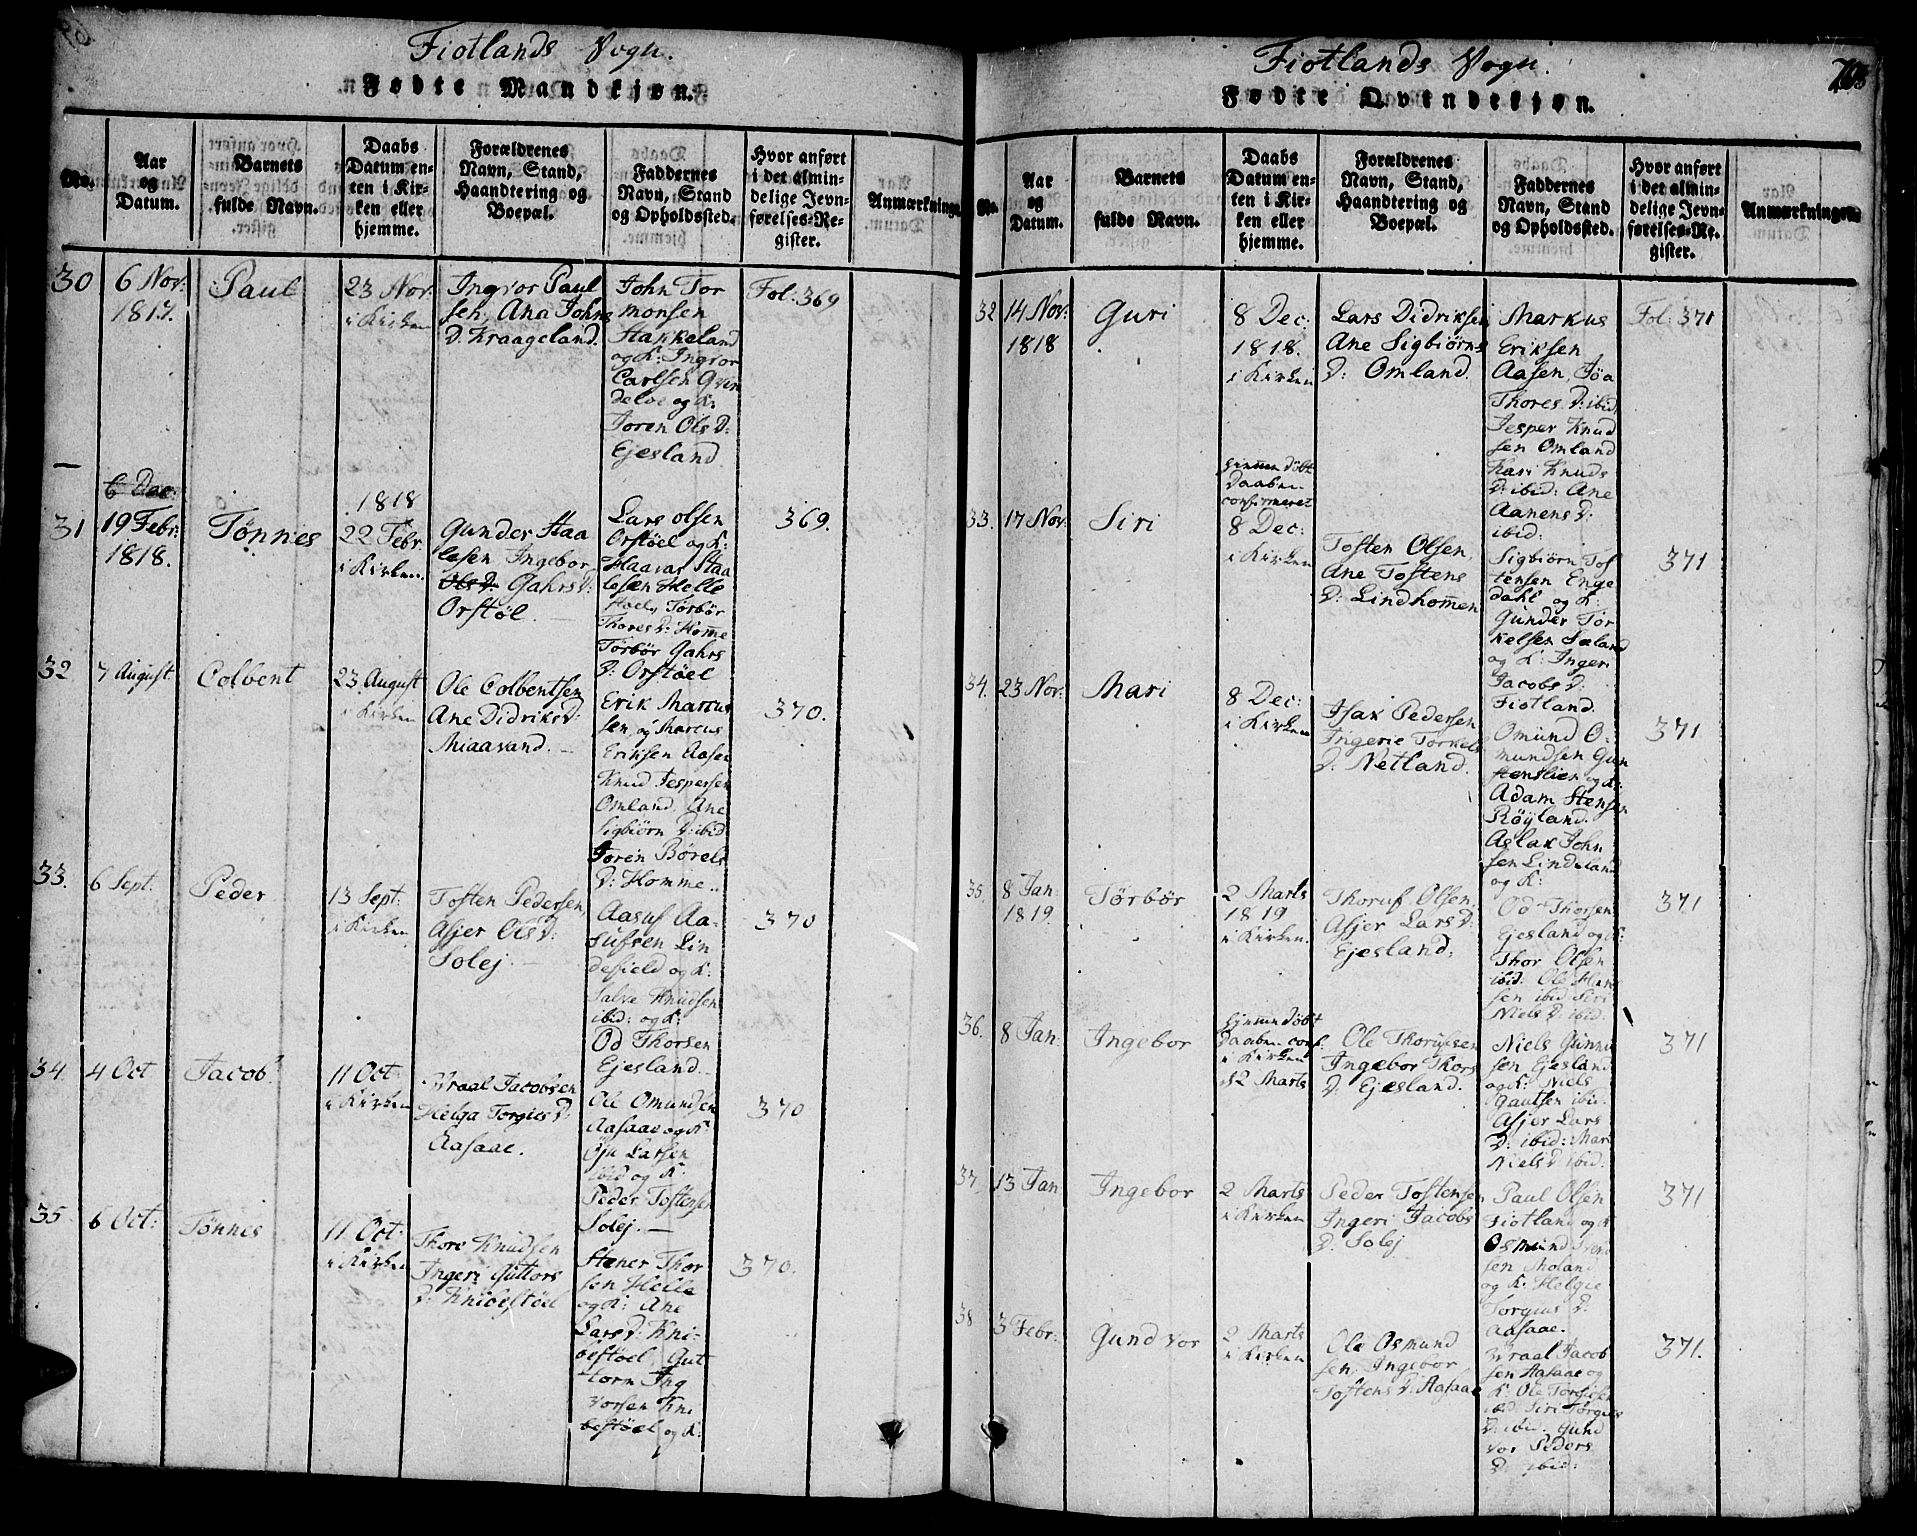 Fiotlands Sogn.
Fødte Mandkjøn.
No.
Aar
og
Datum.
Barnets
fulde Navn.
Daabs
Datum en-
ten i Kir-
ken eller
hjemme.
Forældrenes
Navn, Stand,
Haandtering og
Boepæl.
Faddernes
Navn, Stand
og Opholdssted.
Hvor anført
i det almin-
delige Jevn-
førelses-Re-
gister.
Anmærkninger
30
6 Nov:
1817.
Paul
23 Nov:
i Kirken
Ingvor Paul
sen, Ana Johns
D. Kraageland.
John Tor
monsen
Hapkeland
og K. Ingvor
Carlsen Qvin
delve og K:
Joren Ols D:
Ejesland
Fol: 369
31
6 Dec:
19 Febr:
1818.
Tønnes
1818
22 Febr
i Kirken.
Gunder Haa
lesen Ingebor
Ols D. Gahrs D:
Orstøl.
Lars Olsen
Orstøel og K:
Haavar Haa
lesen Helle
støel, Torbør
Thores D: Homme
Torbør Gahrs
D: Orstøel
369.
32
7 August
Colbent
23 August
i Kirken
Ole Colbentsen
Ane Didriks D:
Miaavand.
Erik Marcus
sen, og Marcus
Eriksen Aasen
Knud Jespersen
Omland, Ane
Sigbiørn D: ibid
Joren Børels
D: Homme..
370.
33.
6 Sept:
Peder
13 Sept:
i Kirken
Tosten Pedersen,
Asjer Ols D:
Solej.
Aasuf Aa-
sufsen Lin
defield og K:
Salve Knudsen
ibid: og K:
Od Thorsen
Ejesland.
370
34
4 Oct
Jacob
11 Oct:
i Kirken
Wraal Jacobsen
Helga Torgius D:
Aasaae.
Ole Omundsen
Aasaae og K
Øju Larsen
ibid og K:
Peder Tostensen
Solej.
370
35
6 Oct:
Tønnes
11 Oct:
i Kirken
Thore Knudsen
Ingeri Guttors
D: Knibestøel
Stener Thor
sen Helle
og K: Ane
Lars D: Kni-
bestøel, Gut
torm Ing
vorsen Kni
bestøel og K:
370.
Fiotlands Sogn.
Fødte Qvindekjøn.
No.
Aar
og
Datum.
Barnets
fulde Navn.
Daabs
Datum en-
ten i Kir-
ken eller
hjemme.
Forældrenes
Navn, Stand,
Haandtering og
Boepæl.
Faddernes
Navn, Stand
og Opholdssted.
Hvor anført
i det almin-
delige Jevn-
førelses-Re-
gister.
Anmærkninger.
32
14 Nov:
1818
Guri
8 Dec:
1818.
i Kirken
Lars Didriksen,
Ane Sigbiørns
D: Omland.
Markus
Eriksen
Aasen, Jøa
Thores D: ibid,
Jesper Knud
sen Omland
Kari Knuds
D: ibid: Ane
Aanens D:
ibid:
Fol: 371
33.
17 Nov:
Siri
hjemmedøbt
Daaben
confirmeret
8 Dec:
i Kirken
Tosten Olsen,
Ane Tostens
D: Lindhommen
Sigbiørn Tos
tensen Enge
dahl og K.
Gunder Tor
kelsen Sæland
og K: Ingeri
Jacobs D:
Fiotland.
371
34.
23 Nov:
Mari
8 Dec:
i Kirken
Isax Pedersen
Ingerie Torkels
D: Netland.
Omund O-
mundsen Gun
stenslien og K:
Adam Stensen
Røyland.
Aslak John
sen Lindeland
og K:
371
35.
8 Jan:
1819
Torbør
2 Marts
1819
i Kirken.
Thoruf Olsen,
Asjer Lars D:
Ejesland.
Od Thorsen
Ejesland og K:
Thor Olsen
ibid: Ole Han
sen ibid Siri
Niels D: ibid:
371
36.
8 Jan:
Ingebor
hjemmedøbt
Daaben conf.
i Kirken
d 2 Marts
Ole Thorufsen
Ingebor Thors
D: Ejesland.
Niels Gunnu
sen Ejesland
og K: Niels
Gautsen ibid.
Asjer Lars
D: ibid: Mari
Niels D: ibid:
371
37.
13 Jan
Ingebor
2 Marts
i Kirken
Peder Tostensen
Ingeri Jacobs
D. Solej
Paul Olsen
Fiotland og K
Osmund Svend
sen Moland
og K: Helgie
Torgius D:
Aasaae.
371
38
3 Febr:
Gundvor
2 Marts
i Kirken
Ole Osmund
sen, Ingebor
Tostens D: Aasaae
Wraal Jacob
sen Aasaae og
K: Ole Torgiusen
ibid Siri Torgius
D: ibid. Gund
vor Peders
D: ibid:
371.